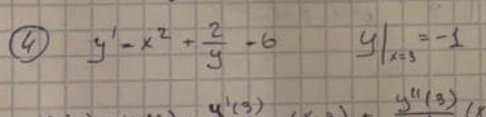 ④ y' - x² + 2/y - 6 y|ₓ₌₃ = -1
y'(3) y''(3)